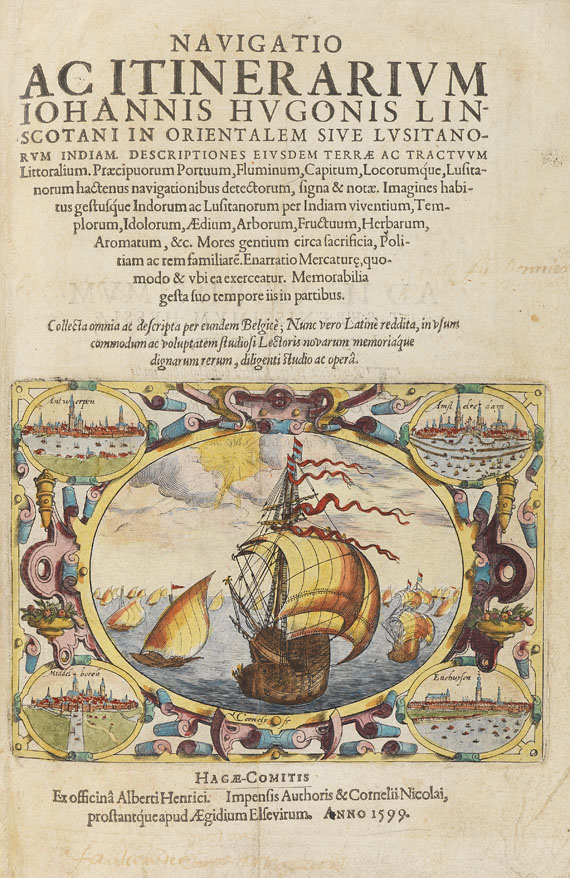 NAVIGATIO
AC ITINERARIVM
IOHANNIS HVGONIS LIN-
SCOTANI IN ORIENTALEM SIVE LVSITANO-
RVM INDIAM. DESCRIPTIONES EIVSDEM TERRÆ AC TRACTVVM
Littoralium. Præcipuorum Portuum, Fluminum, Capitum, Locorumque, Lusita-
norum hactenus navigationibus detectorum, signa & notæ. Imagines habi-
tus gestusque Indorum ac Lusitanorum per Indiam viventium, Tem-
plorum, Idolorum, Ædium, Arborum, Fructuum, Herbarum,
Aromatum, &c. Mores gentium circa sacrificia, Poli-
tiam ac rem familiarē. Enarratio Mercaturę, quo-
modo & vbi ea exerceatur. Memorabilia
gesta suo tempore iis in partibus.
Collecta omnia ac descripta per eundem Belgicè; Nunc vero Latinè reddita, in vsum
commodum ac voluptatem studiosi Lectoris novarum memoriaque
dignarum rerum, diligenti studio ac operâ.
Antwerpen
Amstelredam
Middelboren
Enchuysen
HAGÆ-COMITIS
Ex officinâ Alberti Henrici. Impensis Authoris & Cornelii Nicolai,
prostantque apud Ægidium Elsevirum. ANNO 1599.